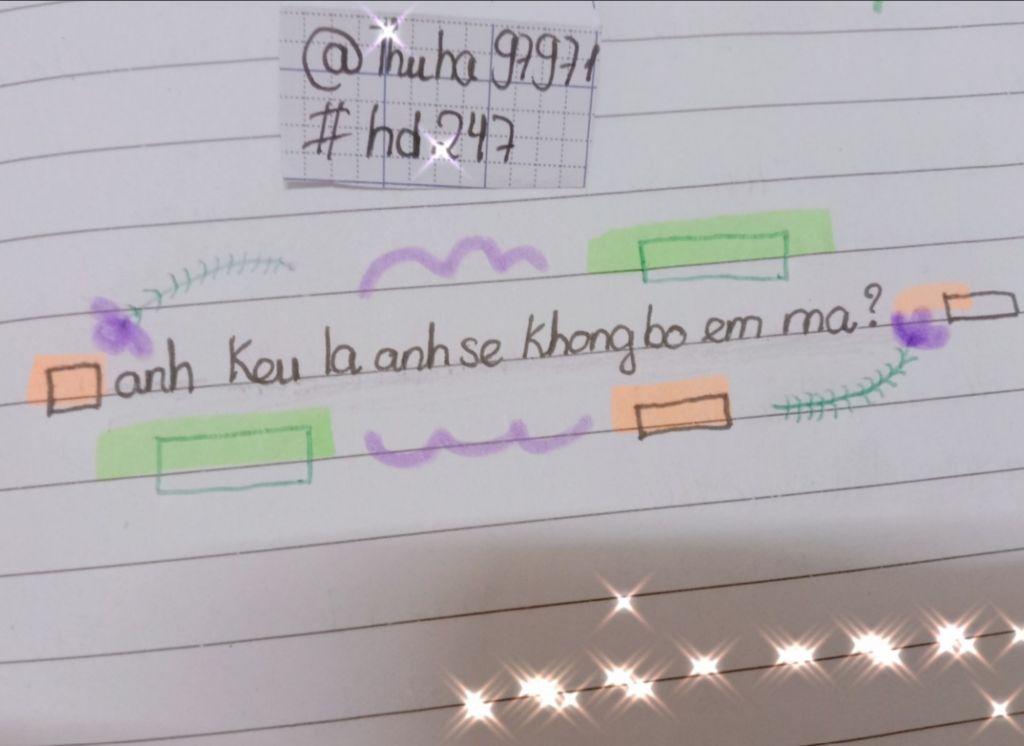 @Thuha97971
#hd.247
anh keu la anh se khong bo em ma?